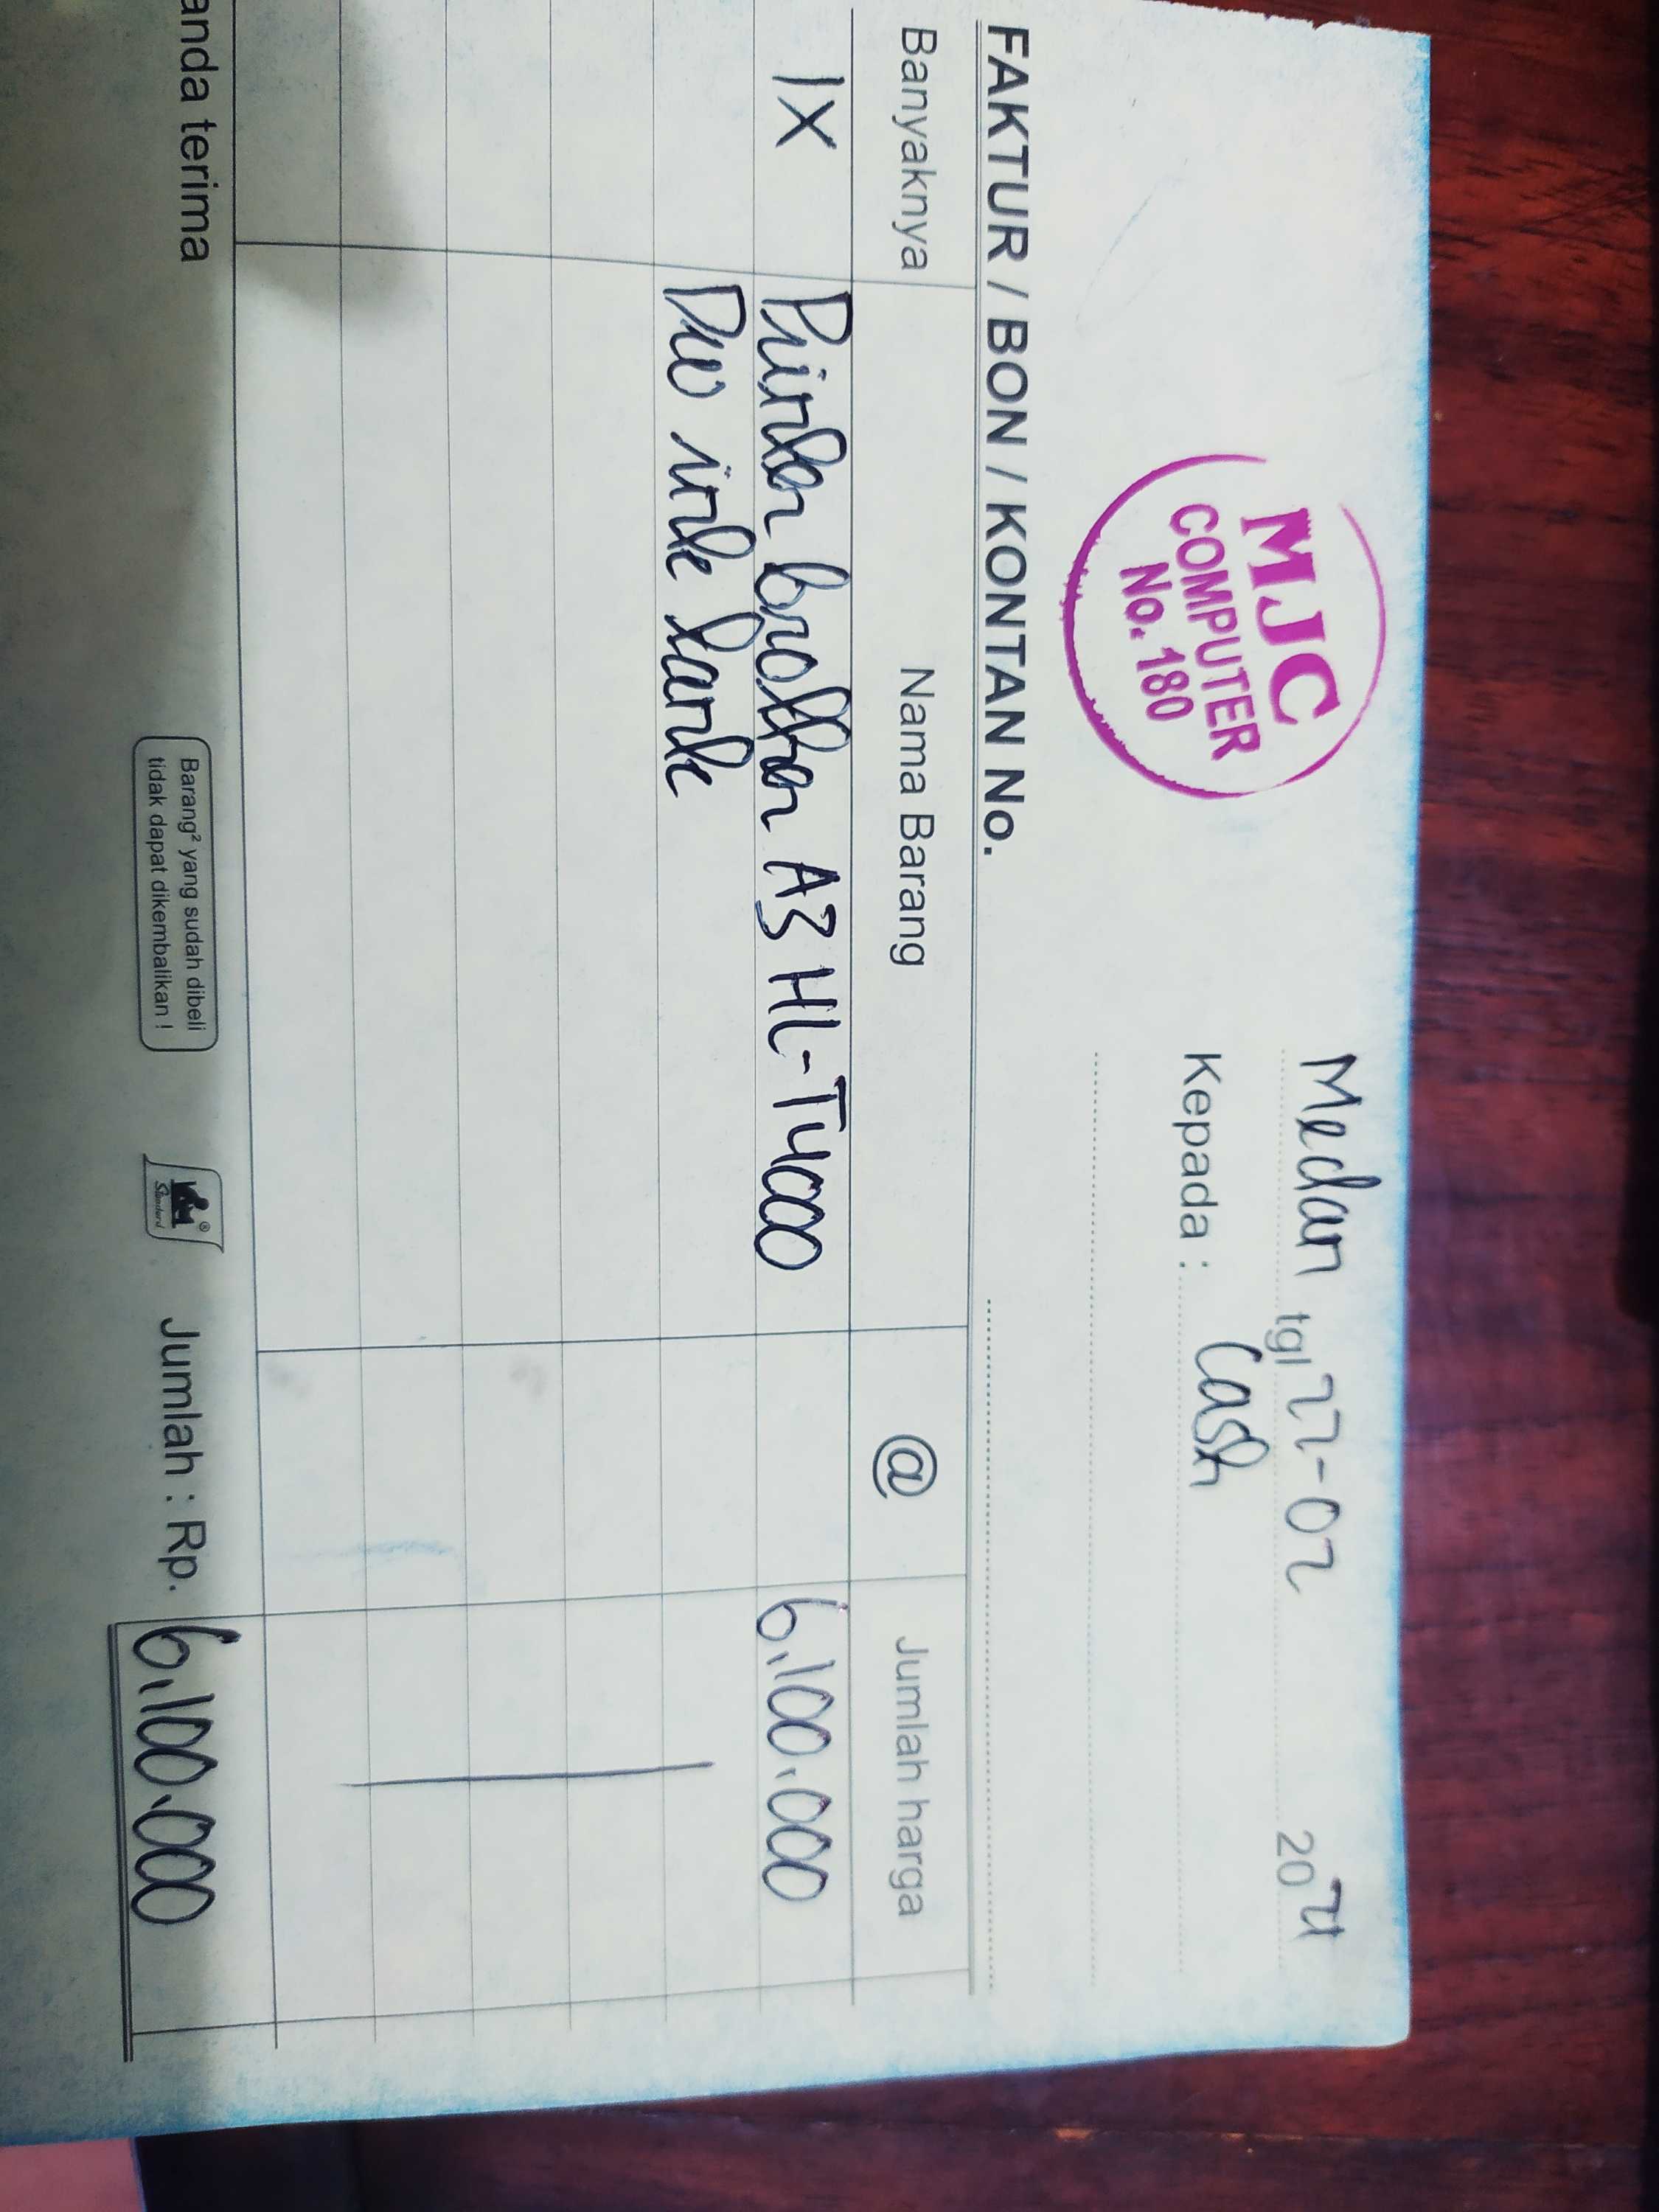 MJC
COMPUTER
No. 180
Medan tgl 27-02 20
Kepada : Cash
FAKTUR / BON / KONTAN No.
Banyaknya Nama Barang @ Jumlah harga
1X Printer brother A3 HL-T4000 6.100.000
DW ink tank
anda terima
Barang² yang sudah dibeli
tidak dapat dikembalikan !
Standard ®
Jumlah : Rp. 6.100.000